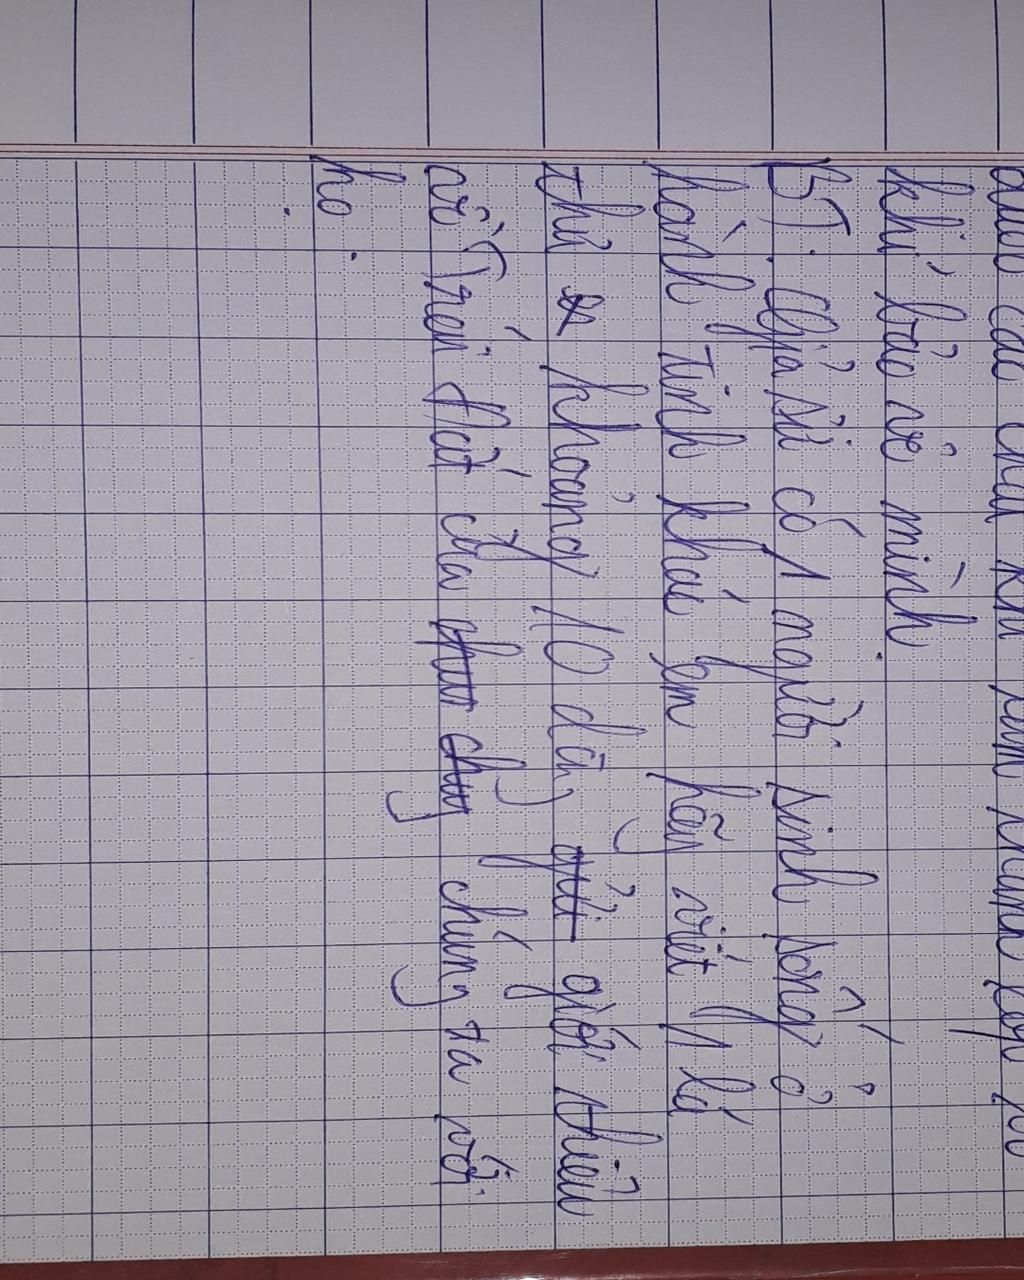 các chú khi xâm nhập
khí bảo vệ mình.
BT: Giả sử có 1 người sinh sống ở
hành tinh khác em hãy viết 1 lá
thư khoảng 10 dãy giới thiệu
về Trái đất của chúng ta với
họ.